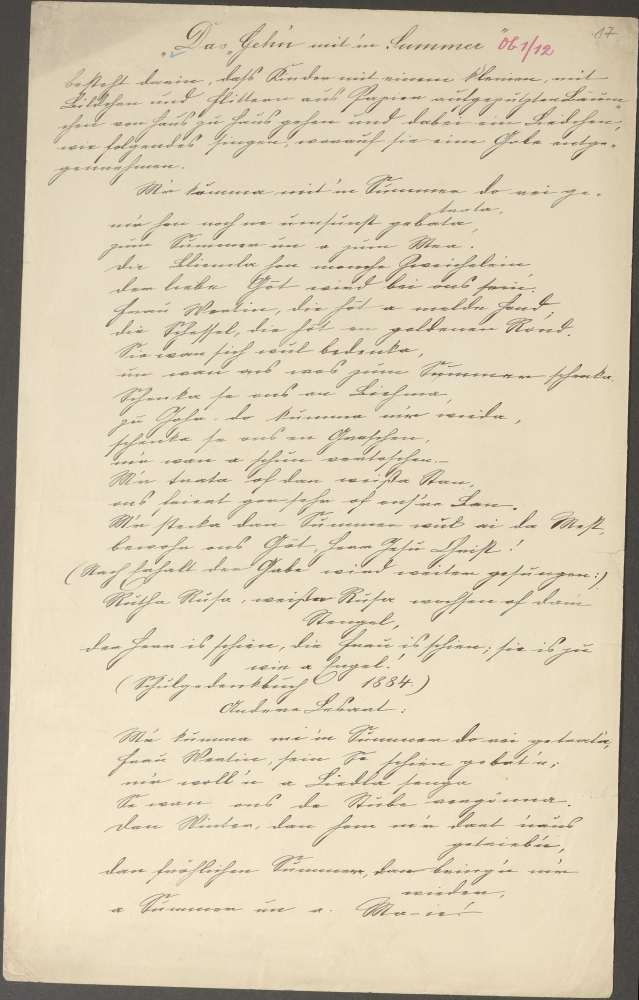 17
„Das Geh'n mit'm Summer" Ob 1/12
besteht darin, daß Kinder mit einem kleinen, mit
Bildchen und Flittern aus Papier aufgeputzten Bäum-
chen von Haus zu Haus gehen und dabei ein Liedchen,
wie folgendes singen, worauf sie eine Gabe entge-
gennehmen.
Mir kumma mit'm Summer do rei ge-
trata,
mir hon noch ne umsunst gebata,
zum Summer un a zum Mea.
die Bliemla hon monche Zweichelein
der liebe Got wird bei ons sein.
Frau Wertin, die hot a Hand,
die Schessel, die hot en goldenen Rond.
Sie wan sich wul bedenka,
un wan ons wos zum Summer schenka.
Schenka se ons an Biehma,
zu Johr do kumma mir wieda,
schenka se ons en Graschen,
mir wan a schun
Mir trata of dan weißa Stan,
ons friert gor sehr of onsre Ban.
Mir stecka dan Summer wul ai da Mest,
bewohr ons Got, Herr Jesu Christ!
(Nach Erhalt der Gabe wird weiter gesungen:)
Rutha Rusa, weißa Rusa wochsen of dem
Stengel,
der Herr is schien, die Frau is schien; sie is zu
wie a Engel.
(Schulgedenkbuch 1884)
Andere Lesart:
Mir kumma mit'm Summer do rei getrata,
Frau Wertin, sein Se schien gebot'n;
mir woll'n a Liedla senga
Se wan ons de Stube vergönna.
Den Winter, dan hom mir dort naus
getrieb'n,
dan fröhlichen Summer, dan bring'n mir
wieder,
a Summer un a Ma-ie!